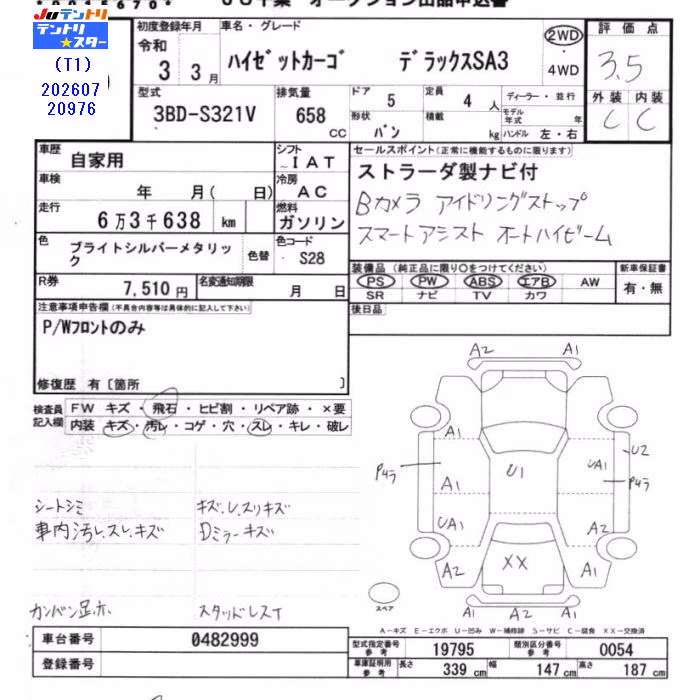 JUテントリ
テントリ★スター
(T1)
202607
20976
初度登録年月
令和
3 3月
車名・グレード
ハイゼットカーゴ デラックスSA3
2WD
・
4WD
評価点
3.5
外装 内装
C C
型式
3BD-S321V
排気量
658 CC
ドア 5
定員 4 人
ディーラー・並行
形状 バン
積載 kg
モデル年式 年
ハンドル 左・右
車歴 自家用
シフト IAT
車検 年 月( 日)
冷房 AC
走行 6万3千638 km
燃料 ガソリン
色 ブライトシルバーメタリック
色替
色コード S28
R券 7,510円
名変通知期限 月 日
セールスポイント(正常に機能するものに限ります)
ストラーダ製ナビ付
Bカメラ アイドリングストップ
スマートアシスト オートハイビーム
装備品(純正品に限り○をつけてください)
PS PW ABS エアB AW
SR ナビ TV カワ
新車保証書
有・無
後日品
注意事項申告欄(不具合内容等は具体的に記入して下さい)
P/Wフロントのみ
修復歴 有〔箇所 〕
検査員記入欄
FW キズ・飛石・ヒビ割・リペア跡・×要
内装 キズ・汚レ・コゲ・穴・スレ・キレ・破レ
シートシミ
車内汚レ.スレ.キズ
キズ.U.スリキズ
Dミラーキズ
カンバン足.赤
スタッドレスT
A2 A1
A1
P4ラ
A1
UA1
A2
U1
XX
U2
UA1
P4ラ
A2
A1
A2 A1
スペア
A-キズ E-エクボ U-凹み W-補修跡 S-サビ C-腐食 XX-交換済
車台番号 0482999
登録番号
型式指定番号 参考 19795
類別区分番号 参考 0054
車庫証明用 参考
長さ 339 cm
幅 147 cm
高さ 187 cm